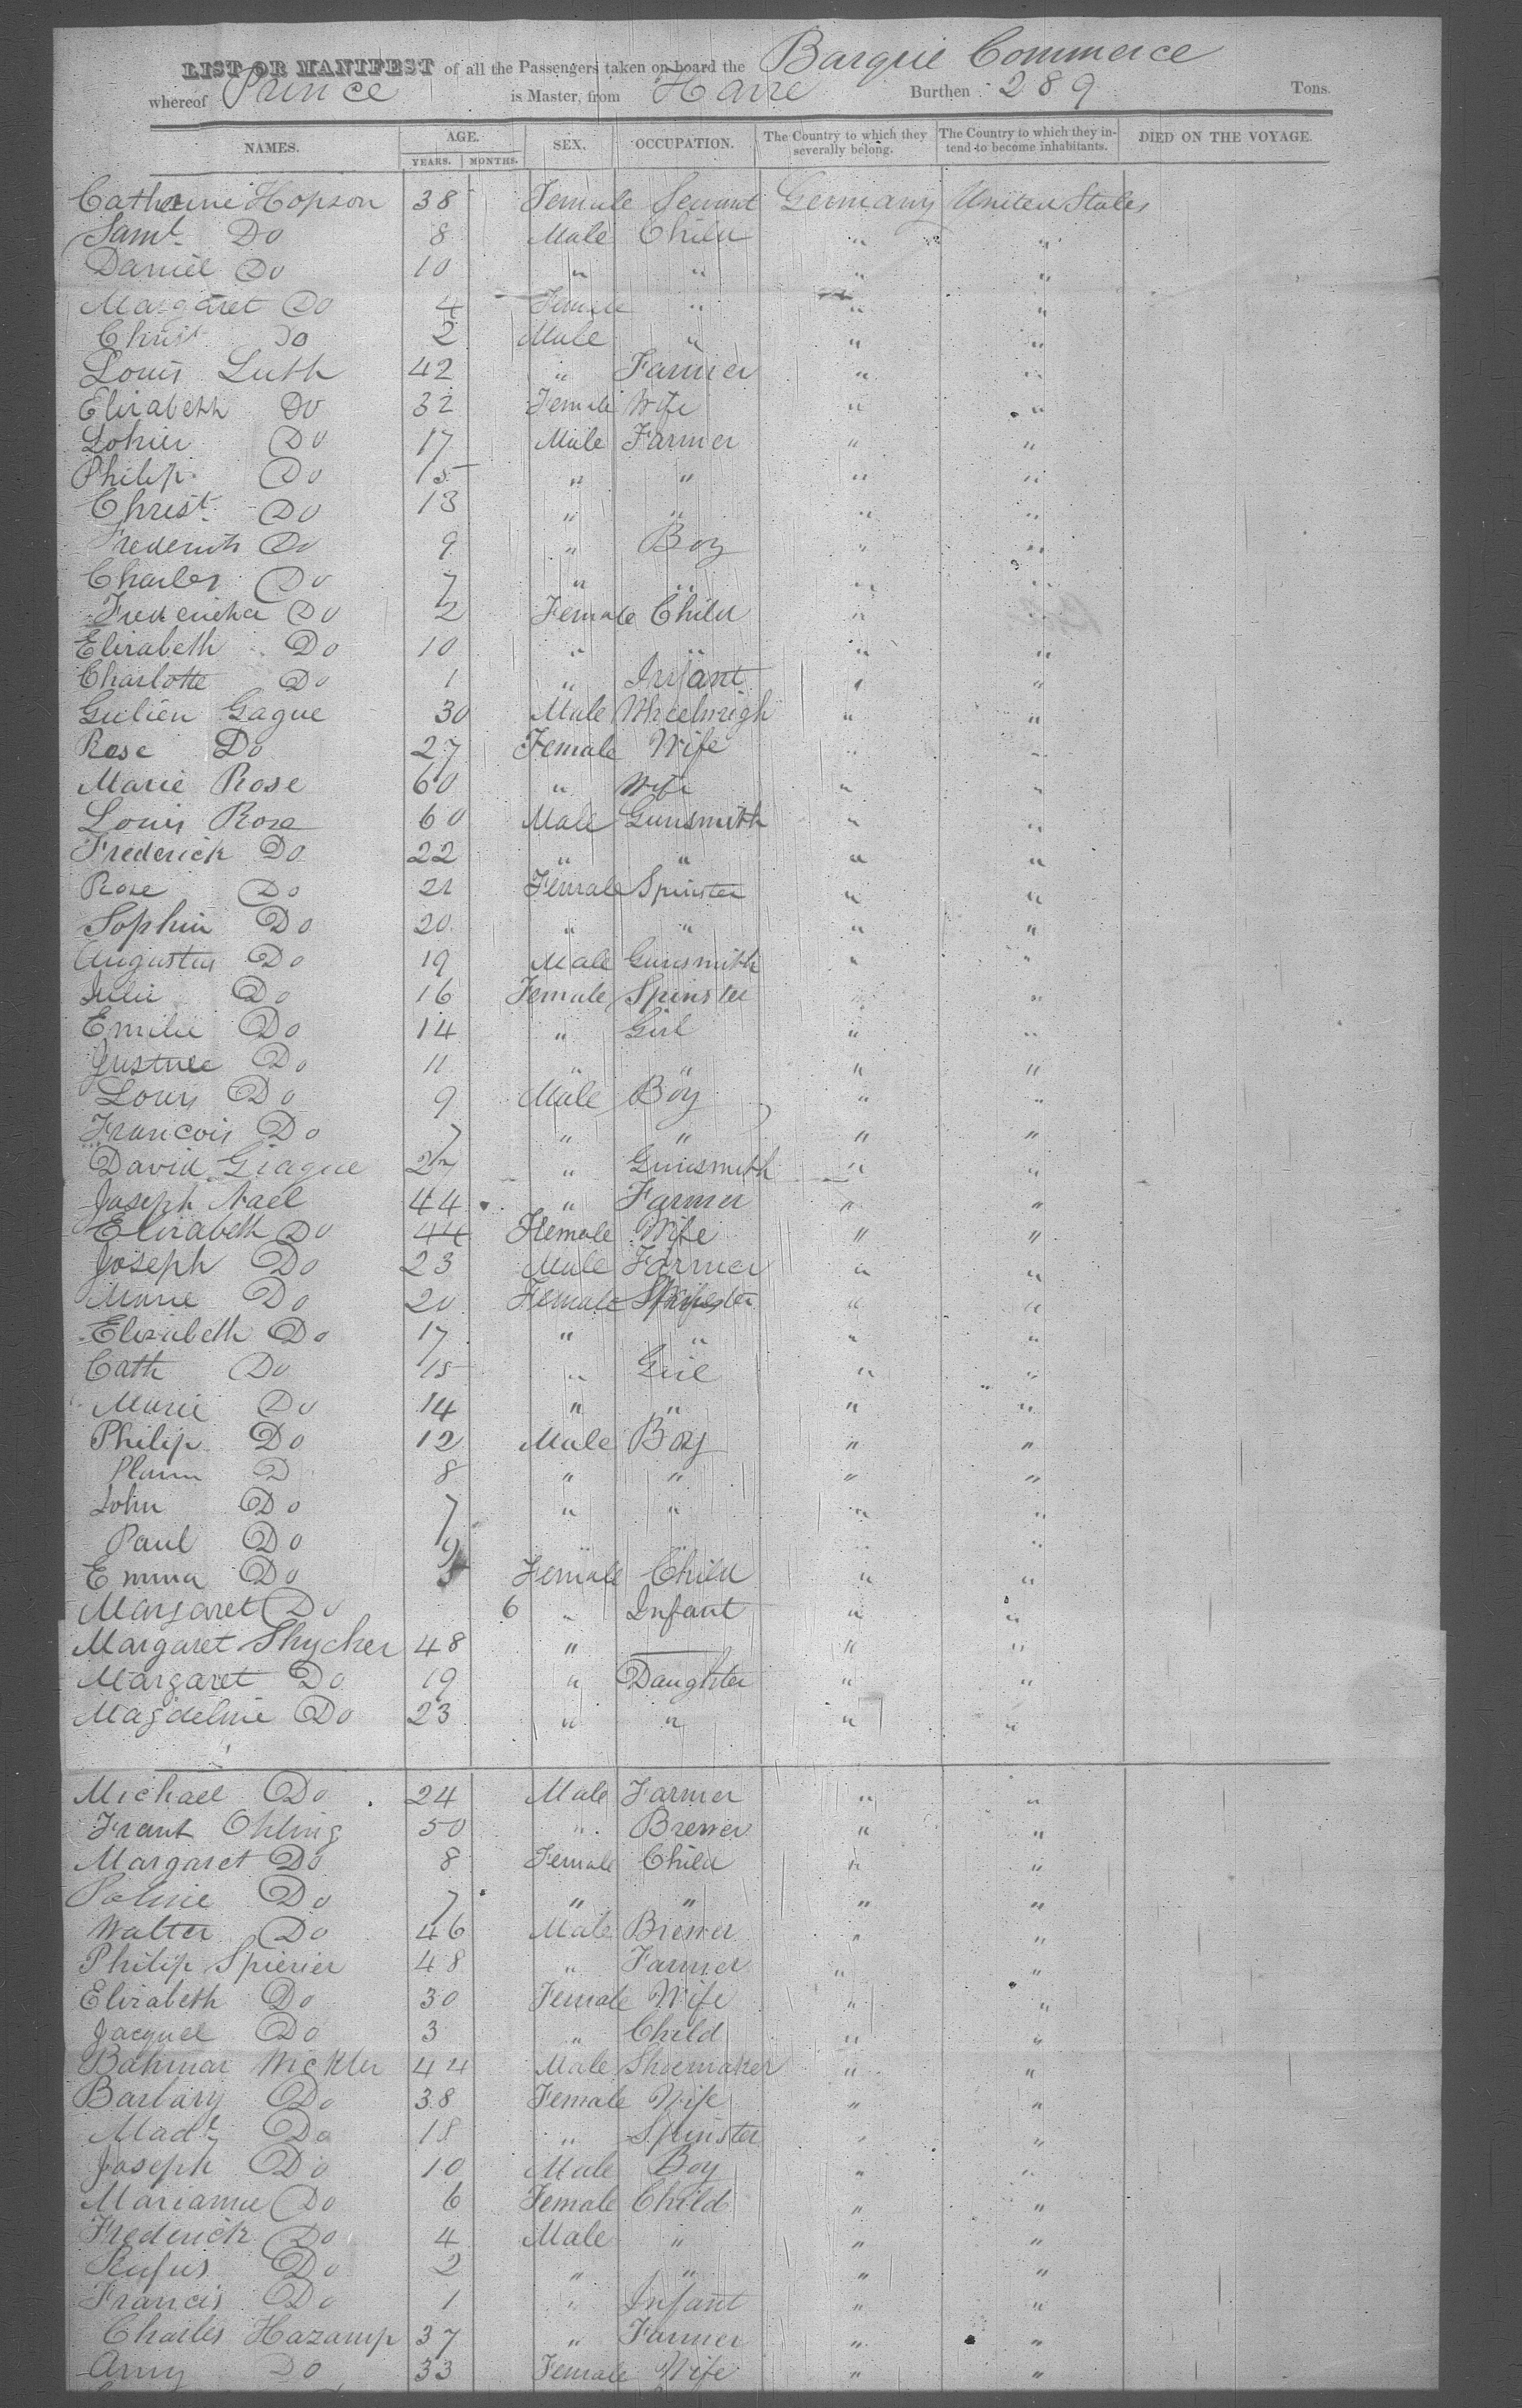 LIST OR MANIFEST of all the Passengers taken on board the Barque Commerce
whereof Prince is Master, from Havre Burthen 289 Tons.
NAMES. AGE. SEX. OCCUPATION. The Country to which they severally belong. The Country to which they intend to become inhabitants. DIED ON THE VOYAGE.
YEARS. MONTHS.
Catherine Hopson 38 Female Servant Germany United States
Saml Do 8 Male Child " "
Daniel Do 10 " " " "
Margaret Do 4 Female " " "
Christ Do 2 Male " " "
Louis Luth 42 " Farmer " "
Elizabeth Do 32 Female Wife " "
Do 17 Male Farmer " "
Philip Do 15 " " " "
Christ Do 13 " " " "
Frederick Do 9 " Boy " "
Charles Do 7 " " " "
Fredericka Do 2 Female Child " "
Elizabeth Do 10 " " " "
Charlotte Do 1 " Infant " "
Gulien Gague 30 Male Wheelwrigh " "
Rose Do 27 Female Wife " "
Marie Rose 60 " Wife " "
Louis Rose 60 Male Gunsmith " "
Frederick Do 22 " " " "
Rose Do 21 Female Spinster " "
Sophia Do 20 " " " "
Augustus Do 19 Male Gunsmith " "
Julie Do 16 Female Spinster " "
Emilie Do 14 " Girl " "
Do 11 " " " "
Louis Do 9 Male Boy " "
Francois Do 7 " " " "
David Giague 27 " Gunsmith " "
Joseph Nael 44 " Farmer " "
Elizabeth Do 44 Female Wife " "
Joseph Do 23 Male Farmer " "
Marie Do 20 Female Spinster " "
Elizabeth Do 17 " " " "
Cath Do 15 " Girl " "
Marie Do 14 " " " "
Philip Do 12 Male Boy " "
D 8 " " " "
John Do 7 " " " "
Paul Do 9 " " " "
Emma Do Female Child " "
Margaret Do 6 " Infant " "
Margaret Shycher 48 " — " "
Margaret Do 19 " Daughter " "
Magdeline Do 23 " " " "
Michael Do 24 Male Farmer " "
Frant Ohling 50 " Brewer " "
Margaret Do 8 Female Child " "
Poline Do 7 " " " "
Walter Do 46 Male Brewer " "
Philip Spierier 48 " Farmer " "
Elizabeth Do 30 Female Wife " "
Jacquel Do 3 " Child " "
Wickler 44 Male Shoemaker " "
Barbary Do 38 Female Wife " "
Madl Do 18 " Spinster " "
Joseph Do 10 Male Boy " "
Marianne Do 6 Female Child " "
Frederick Do 4 Male " " "
Rufus Do 2 " " " "
Francis Do 1 " Infant " "
Charles Hazamp 37 " Farmer " "
Amy Do 33 Female Wife " "